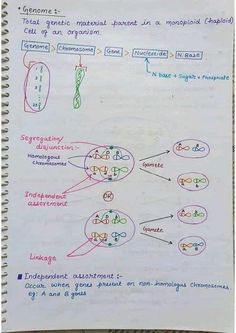 • Genome :-
Total genetic material parent in a monoploid (haploid)
Cell of an organism.
Genome > Chromosome > Gene > Nucleotide > N. Base
N base + Sugar + Phosphate
Segregation/
disjunction :-
Homologous
chromosomes
Gamete
Independent
assorement
OR
Gamete
Linkage
■ Independent assortment :-
Occur when genes present on non-homologus Chromosomes.
eg: A and B genes